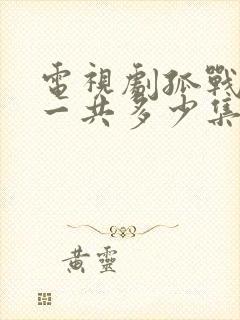 電視劇孤戰
一共多少集
黃靈